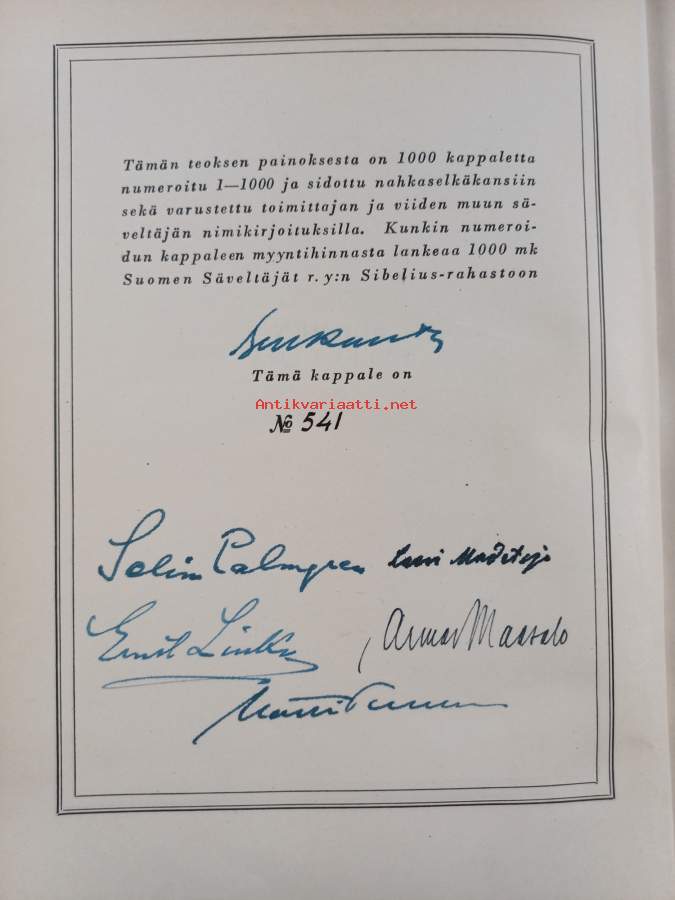 Tämän teoksen painoksesta on 1000 kappaletta
numeroitu 1—1000 ja sidottu nahkaselkäkansiin
sekä varustettu toimittajan ja viiden muun sä-
veltäjän nimikirjoituksilla. Kunkin numeroi-
dun kappaleen myyntihinnasta lankeaa 1000 mk
Suomen Säveltäjät r.y:n Sibelius-rahastoon
Tämä kappale on
Antikvariaatti.net
№ 541
Selim Palmgren Leevi Madetoja
Ernst Linko Armas Maasalo